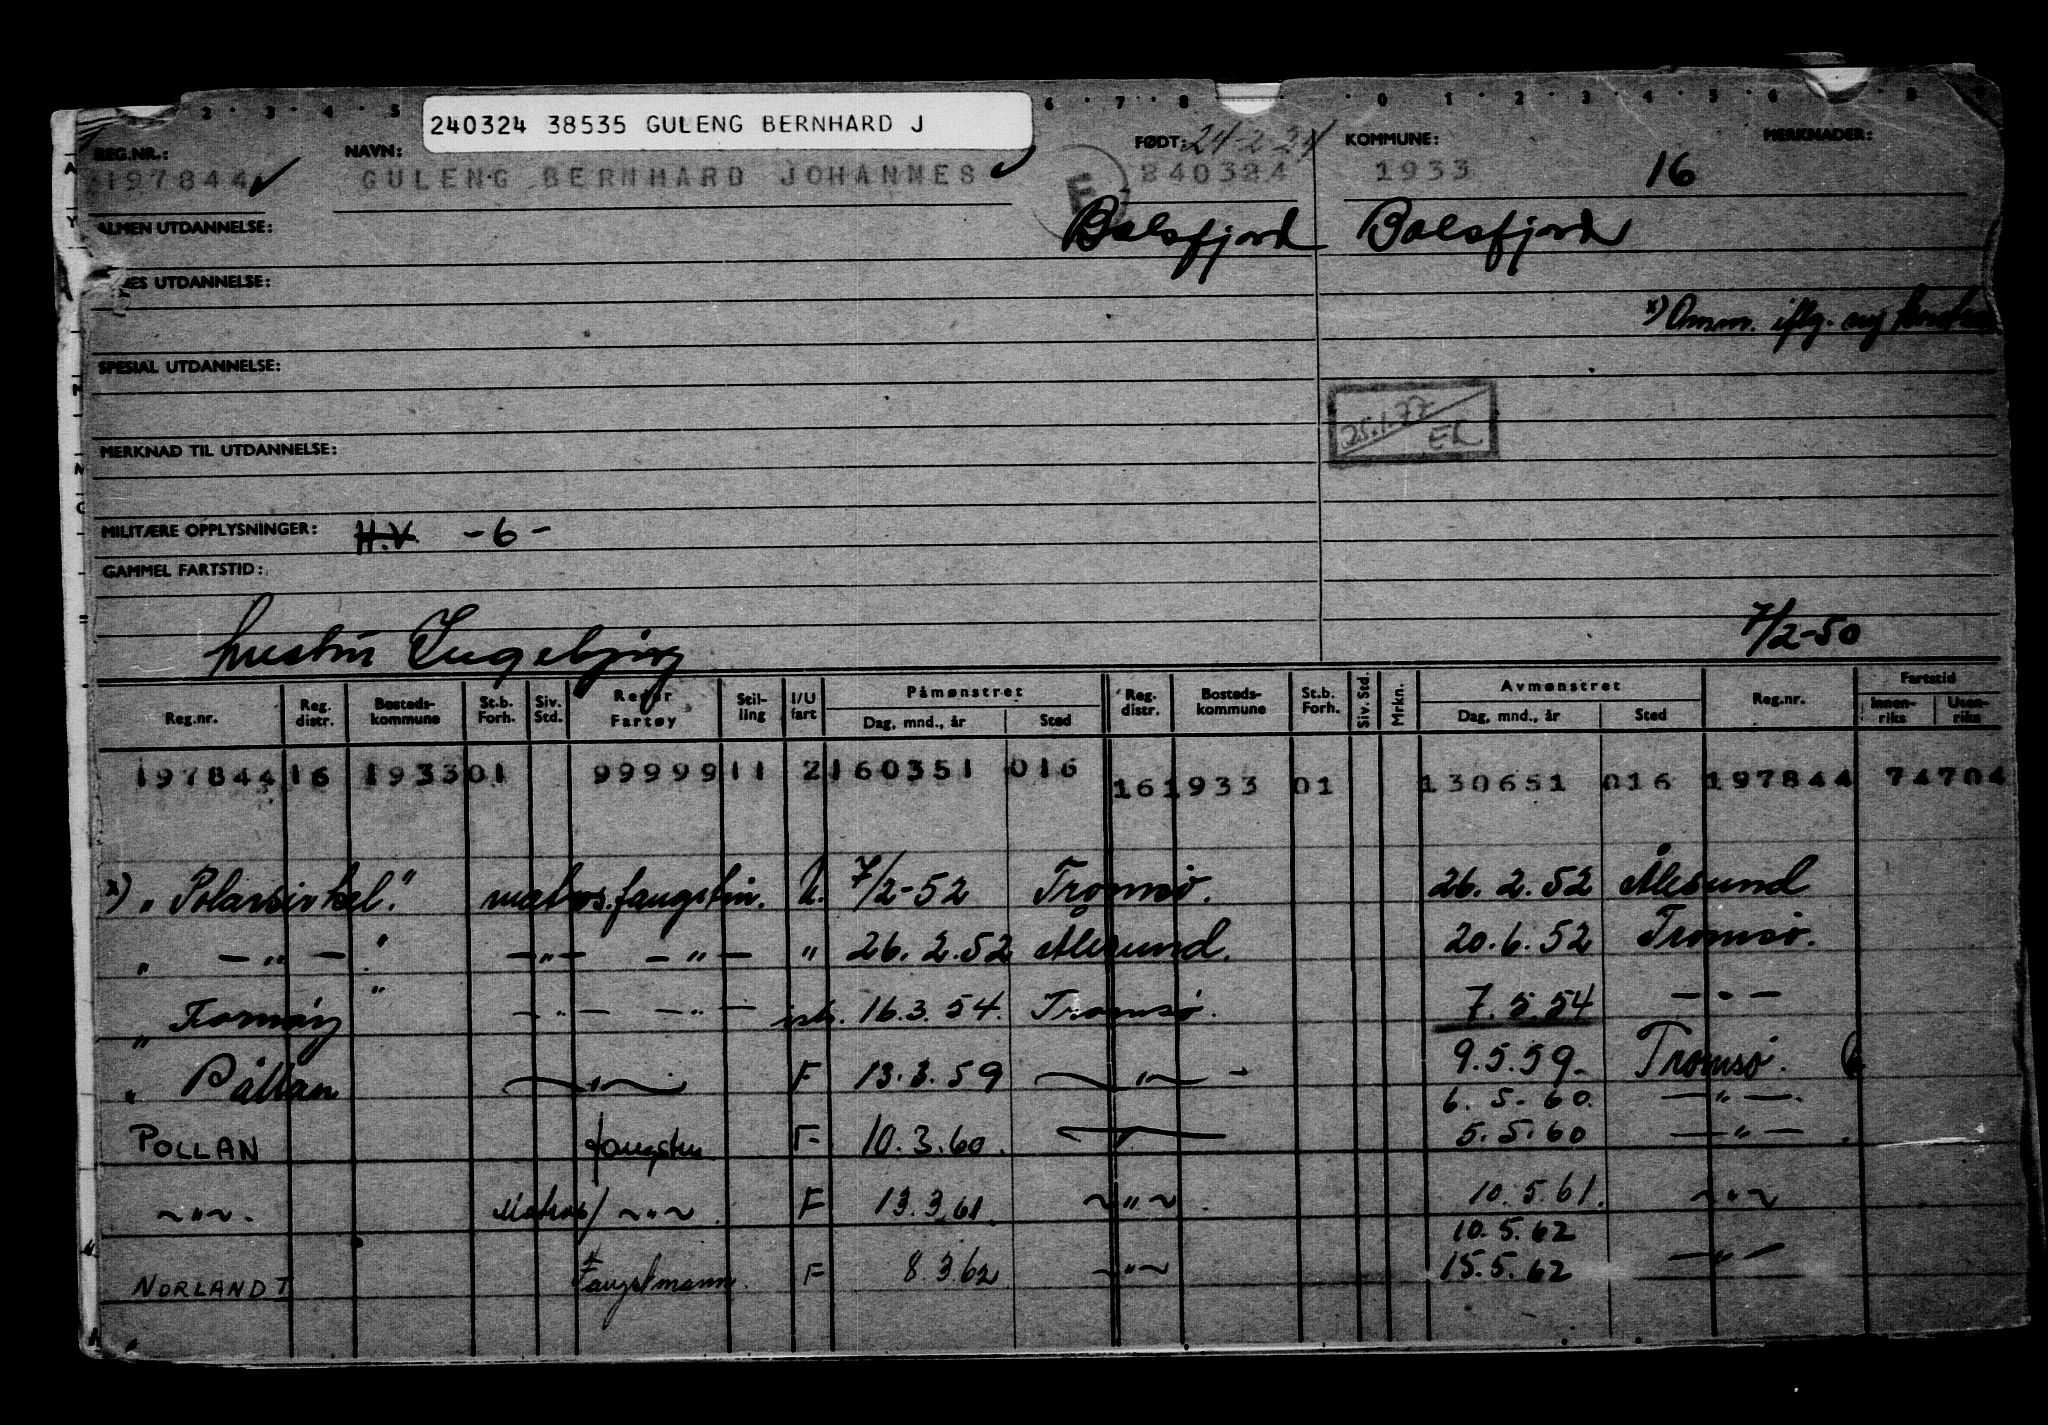 2 3 4 5 6 7 8 0 1 2 3 4 5 6 8
240324 38535 GULENG BERNHARD J
REG.NR.: NAVN: FØDT: 24-2-24 KOMMUNE: MERKNADER:
197844 GULENG BERNHARD JOHANNES E 240324 1933 16
ALMEN UTDANNELSE: Balsfjord Balsfjord
UTDANNELSE:
x) Omm. iflg. ny
SPESIAL UTDANNELSE:
25.1.77
MERKNAD TIL UTDANNELSE:
MILITÆRE OPPLYSNINGER: H.V. -6-
GAMMEL FARTSTID:
hustru Ingebjørg 7/2-50
Reg.nr. Reg. distr. Bosteds-kommune St.b. Forh. Siv. Std. Rederi Fartøy Stil-ling I/U fart Påmønstret Dag, mnd., år Sted Reg. distr. Bosteds-kommune St.b. Forh. Siv. Std. Mrkn. Avmønstret Dag, mnd., år Sted Reg.nr. Fartstid Innen-riks Uten-riks
197844 16 1933 01 99999 11 2 160351 016 16 1933 01 130651 016 197844 74704
x) " Polarsirkel." matros. fangstm. U. 7/2-52 Tromsø. 26.2.52 Ålesund
" —"— " —"— —"— " 26.2.52 Ålesund. 20.6.52 Tromsø.
" " —"— —"— ish. 16.3.54. Tromsø. 7.5.54 —"—
" Pållan —"— F 13.3.59 —"— - 9.5.59. Tromsø.
6.5.60. —"—.
POLLAN fangstm. F 10.3.60. —"— 5.5.60 —"—.
~"~. Matros/ ~"~. F 13.3.61. ~"~. 10.5.61. ~"~
10.5.62
NORLANDT Fangstmann. F 8.3.62 ~"~ 15.5.62 —"—